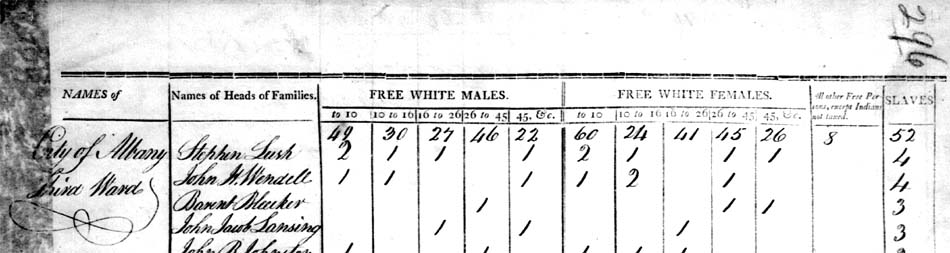 246
NAMES of Names of Heads of Families. FREE WHITE MALES. FREE WHITE FEMALES. All other Free Per- sons, except Indians not taxed. SLAVES
to 10 10 to 16 16 to 26 26 to 45 45, &c. to 10 10 to 16 16 to 26 26 to 45 45, &c.
49 30 27 46 22 60 24 41 45 26 8 52
City of Albany Stephen Lush 2 1 1 1 2 1 1 1 4
Third Ward John H. Wendell 1 1 1 1 2 1 4
Barent Bleeker 1 1 1 3
John Jacob Lansing 1 1 1 3
John B Johnston 1 1 1 1 1